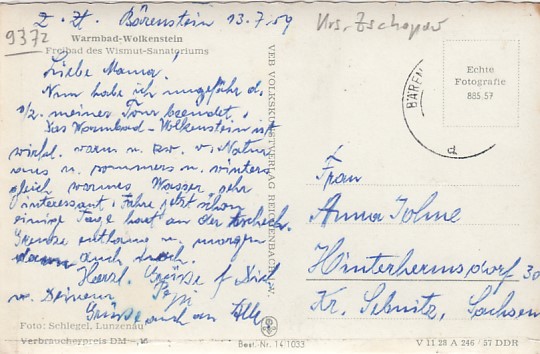 Z. Zt. Bärenstein 13.7.59
9372
Krs. Zschopau
Warmbad-Wolkenstein
Freibad des Wismut-Sanatoriums
Liebe Mama!
Nun habe ich ungefähr d.
1/2 meiner Tour beendet.
Das Warmbad-Wolkenstein ist
wirkl. warm u. zw. v. Natur
aus u. sommers u. winters
gleich warmes Wasser, sehr
interessant. Fahre jetzt schon
einige Tage hart an der tschech.
Grenze entlang u. morgen
auch noch.
Herzl. Grüße f. Dich
v. Deinem
Grüße auch an Alle
Foto: Schlegel, Lunzenau
Verbraucherpreis DM
VEB VOLKSKUNSTVERLAG REICHENBACH i. V.
Best. Nr. 14 1033
BÄREN
d
Echte
Fotografie
885.57
Frau
Anna
Hinterhermsdorf 30
Kr. Sebnitz, Sachsen
V 11 28 A 246 / 57 DDR